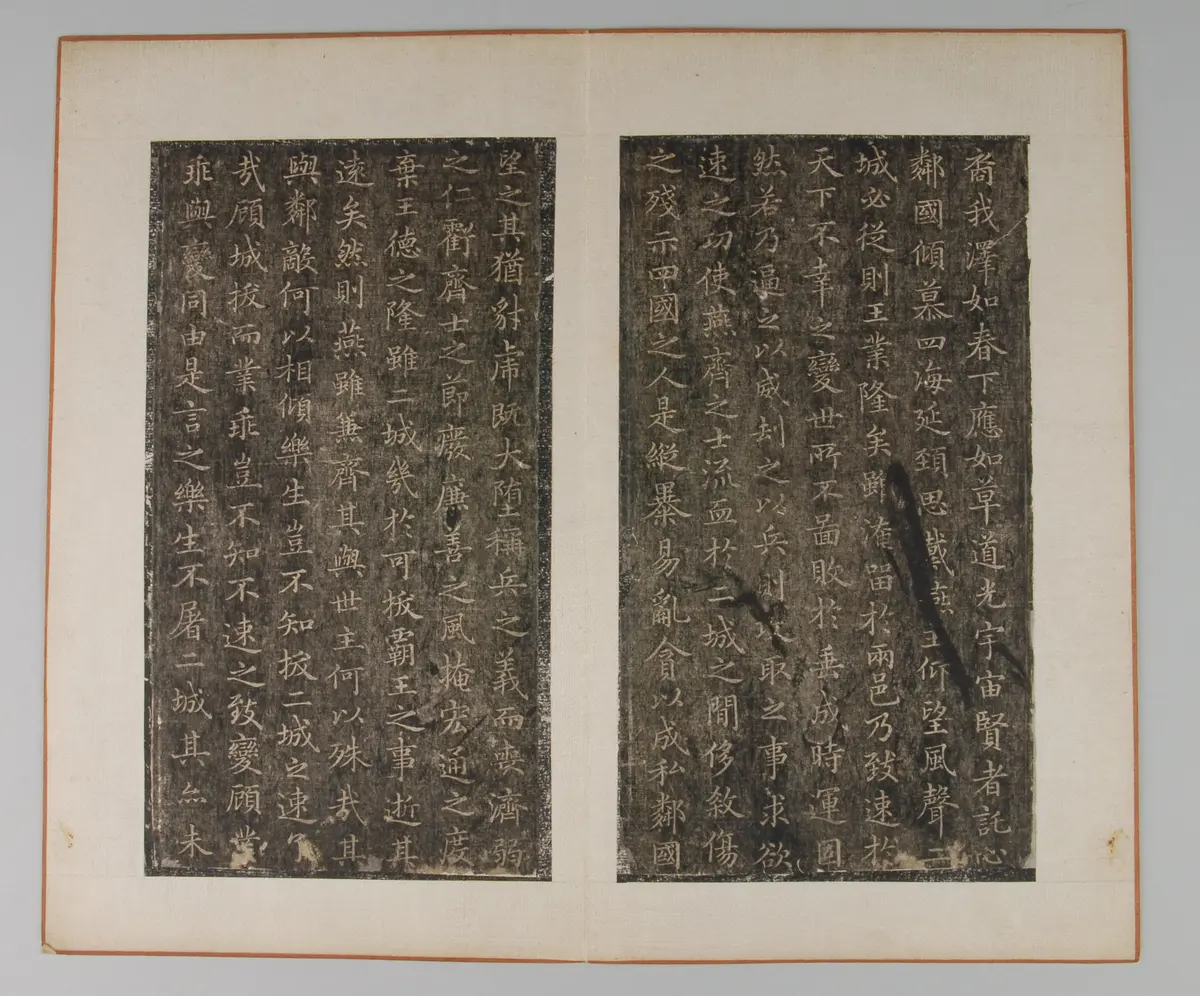 裔我澤如春下應如草道光宇宙賢者託心
鄰國傾慕四海延頸思戴燕主仰望風聲二
城必從則王業隆矣雖淹留於兩邑乃致速於
天下不幸之變世所不啚敗於垂成時運固
然若乃逼之以威刦之以兵則攻取之事求欲
速之功使燕齊之士流血於二城之間侈敘傷
之殘示四國之人是縱暴易亂貪以成私鄰國
望之其猶豺虎既大墮稱兵之義而喪濟弱
之仁虧齊士之節廢廉善之風掩宏通之度
棄王德之隆雖二城幾於可拔霸王之事逝其
遠矣然則燕雖兼齊其與世主何以殊哉其
與鄰敵何以相傾樂生豈不知拔二城之速了
哉顧城拔而業乖豈不知不速之致變顧業
乖與變同由是言之樂生不屠二城其亦未